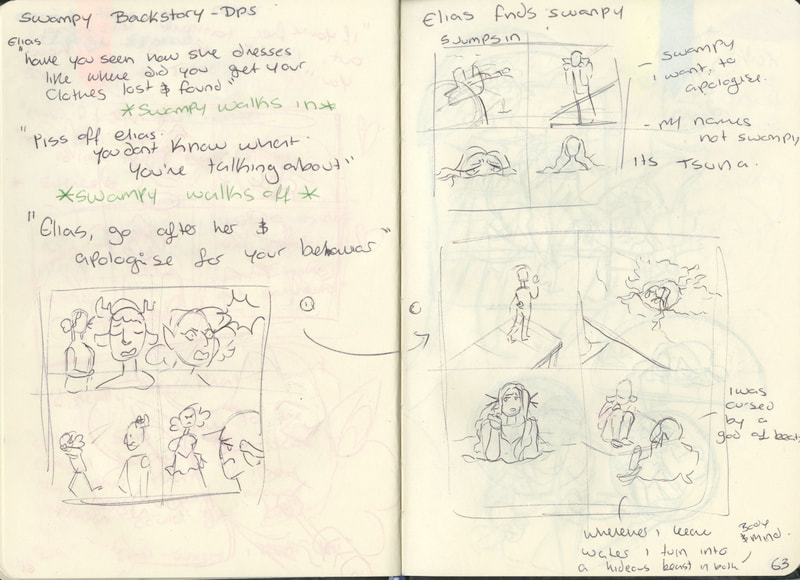 Swampy Backstory - DPS
Elias
"have you seen how she dresses
like where did you get your
clothes lost & found"
*Swampy walks in*
"Piss off elias.
you dont know what
you're talking about"
*Swampy walks off*
"Elias, go after her &
apologise for your behaviour"
1
Elias finds swampy
Jumps in
- swampy
i want, to
apologise.
- my names
not swampy
Its Tsuna.
I was
cursed
by a
god of beauty
whenever i leave
water i turn into
a hideous beast in both
Body
& mind.
63